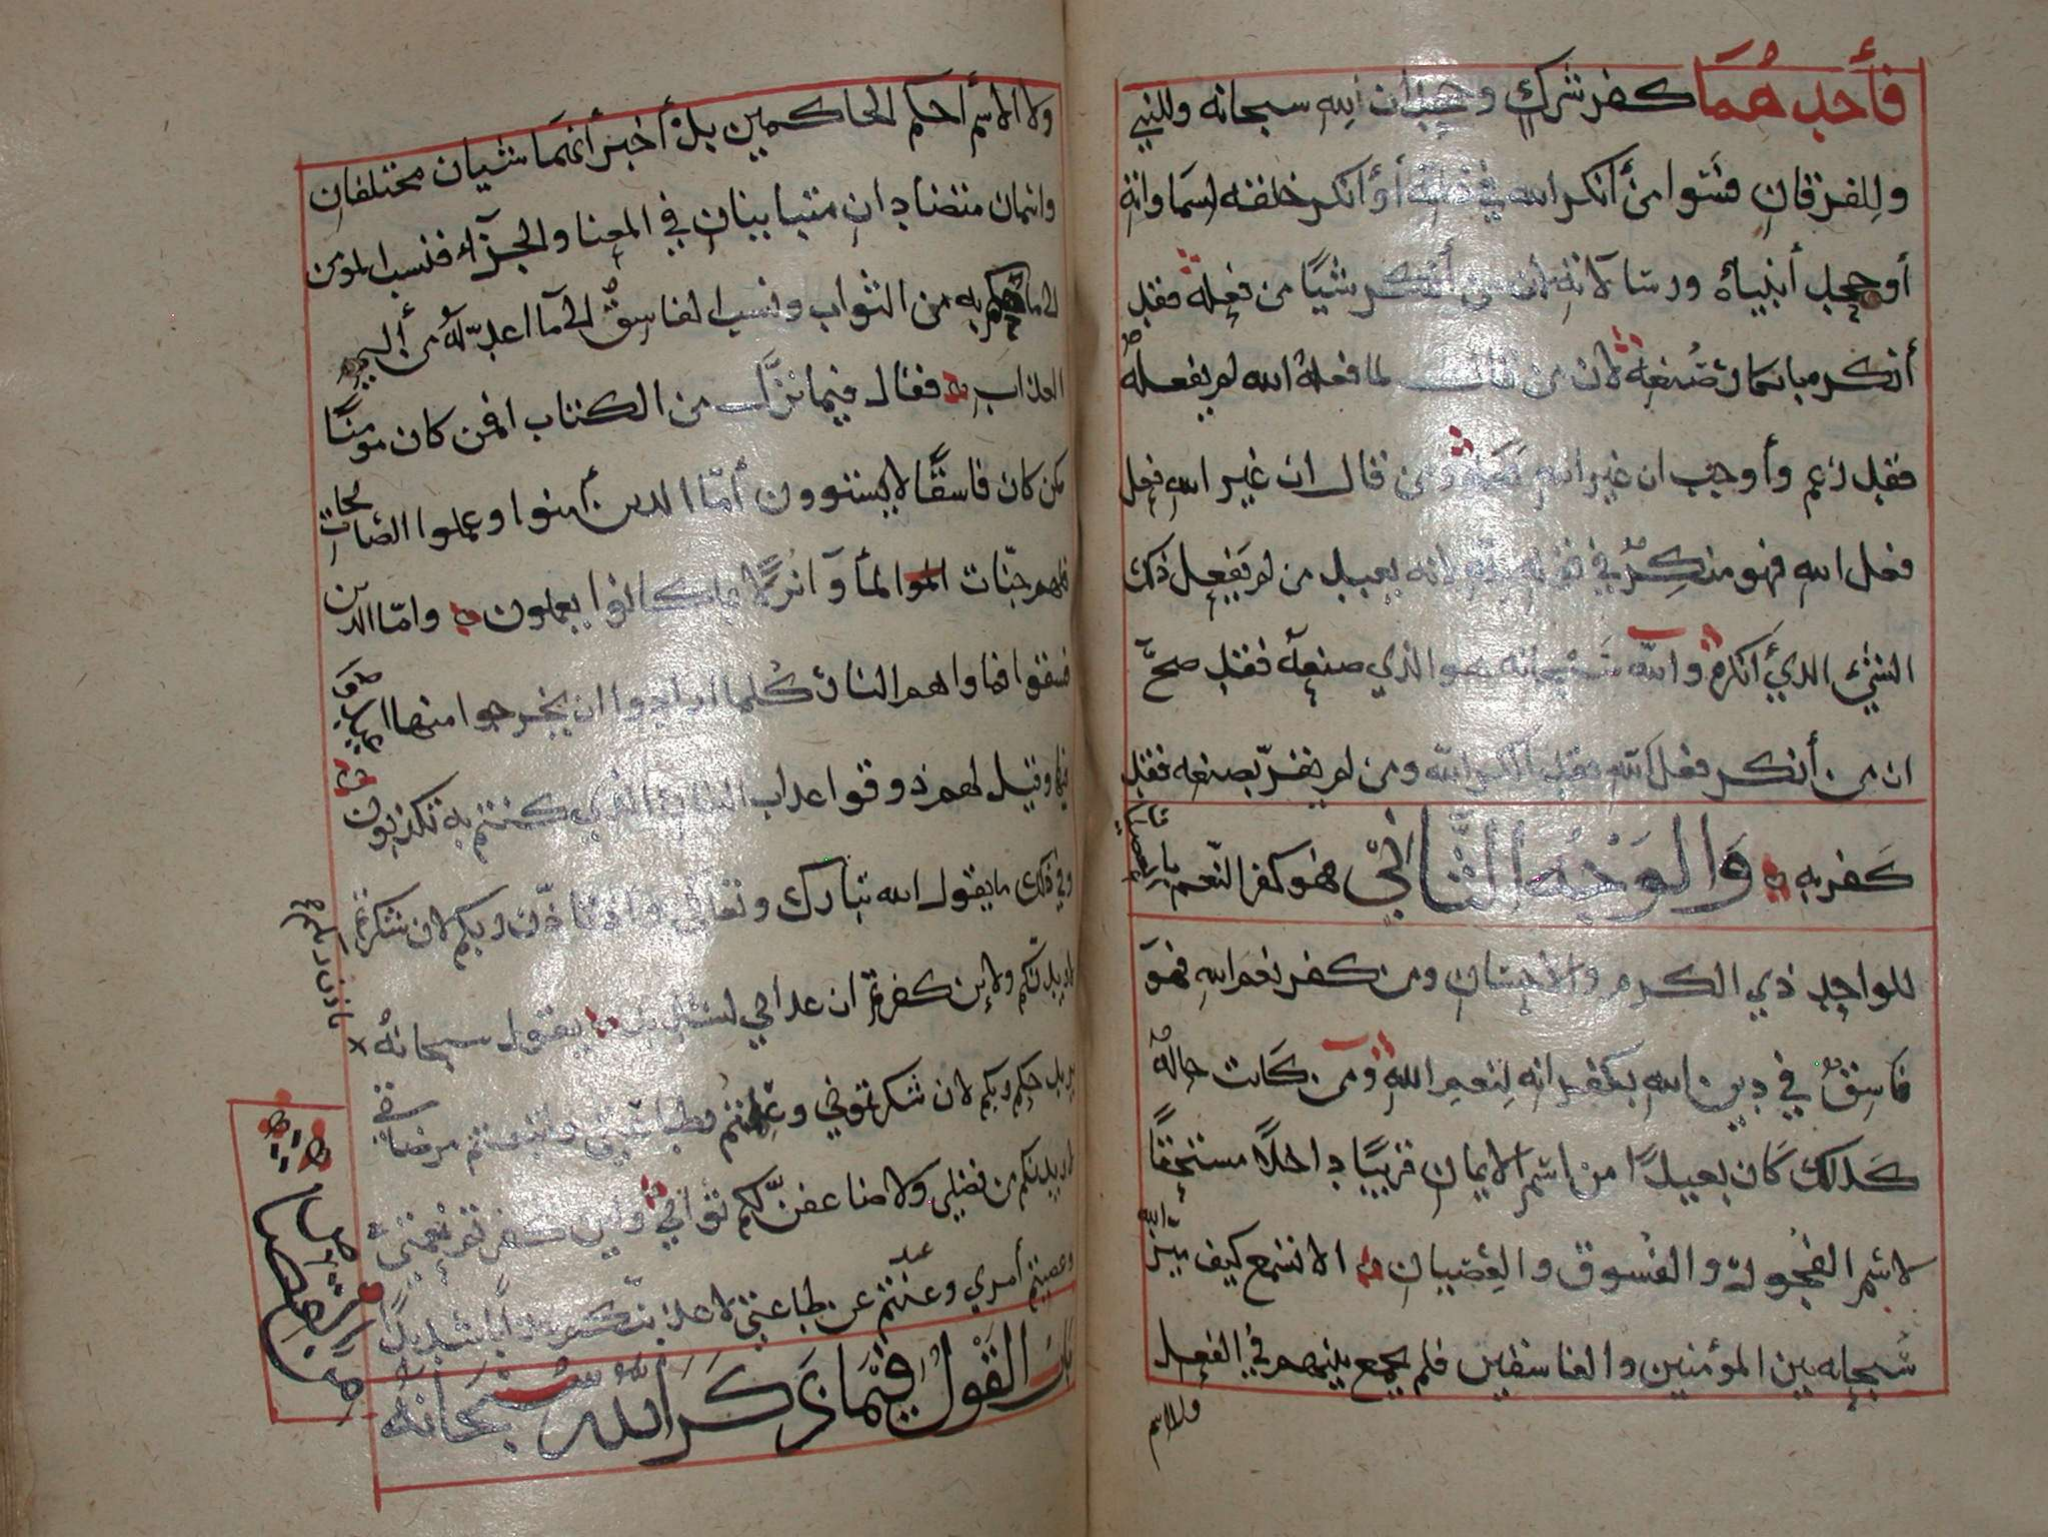 فأحدهما كفر شرك وجحدان لله سبحانه وللنبي
وللفرقان فسوا من أنكر الله في فعله أو أنكر خلقه لسماواته
أو جحد أنبياه ورسالاته لان من أنكر شيًا من فعله فقد
أنكر مابان من صنعه لان من قال لما فعله الله لم يفعله
فقد زعم وأوجب ان غير الله صنعه ومن قال ان غير الله فعل
فعل الله فهو منكر في قوله لله لانه يعبد من لم يفعل ذلك
الشي الذي أنكره والله سبحانه هو الذي صنعه فقد صح
ان من أنكر فعل الله فقد أنكر الله ومن لم يقر بصنعه فقد
كفر به والوجه الثاني فهو كفر النعم بالعصيان
للواحد ذي الكرم والاحسان ومن كفر نعم الله فهو
فاسق في دين الله بكفرانه لنعم الله ومن كانت حاله
كذلك كان بعيدًا من اسم الايمان قريبًا داخلاً مستحقًا
لاسم الفجور والفسوق والعصيان الا تسمع كيف ميز الله
سبحانه بين المؤمنين والفاسقين فلم يجمع بينهم في الفعل
ولا الاسم
ولا الاسم أحكم الحاكمين بل أخبر أنهما شيان مختلفان
وانهمان متضادان متباينان في المعنا والجزآء فنسب المومن
الى ما به من الثواب ونسب الفاسق الى مآ اعد له من أليم
العذاب فقال فيما نزّل من الكتاب افمن كان مومنًا
كمن كان فاسقًا لا يستوون أمّا الذين أمنوا وعملوا الصالحات
فلهم جنّات المأوا نزلا بما كانوا يعملون وامّا الذين
فسقوا فماواهم النار كلما ارادوا ان يخرجوا منها اعيدوا
فيها وقيل لهم ذوقوا عذاب النار الذي كنتم به تكذبون
وفي ذلك ما يقول الله تبارك وتعالى واذ تاذن ربكم لان شكرتم
لازيدنكم ولإن كفرتم ان عذابي لشديد يقول سبحانه
حكم ربكم لان شكرتموني وطلبتم مرضاتي
لازيدنكم من فضلي ولاضاعفن لكم ثوابي ولإن كفرتم نعمتي
وعصيتم أمري وعندتم عن طاعتي لاعذبنكم عذابًا شديدًا
باب القول فيما ذكر الله سبحانه
من العصيان